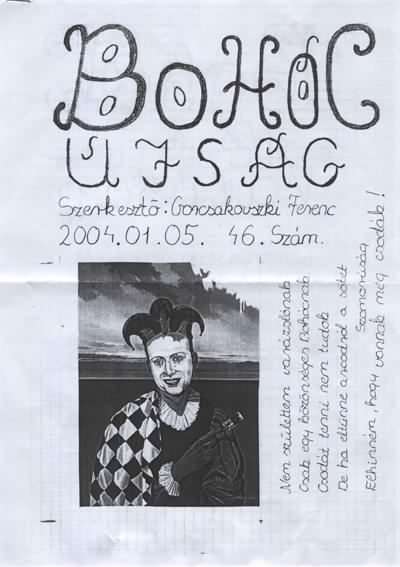 BOHÓC
UJSÁG
Szerkesztő: Gorcsakovszki Ferenc
2004.01.05. 46. Szám.
Nem születtem varázslónak
Csak egy közönséges bohócnak
Csodát tenni nem tudok
De ha eltünne arcodról a sötét
Szomorúság
Elhinném, hogy vannak még csodák!